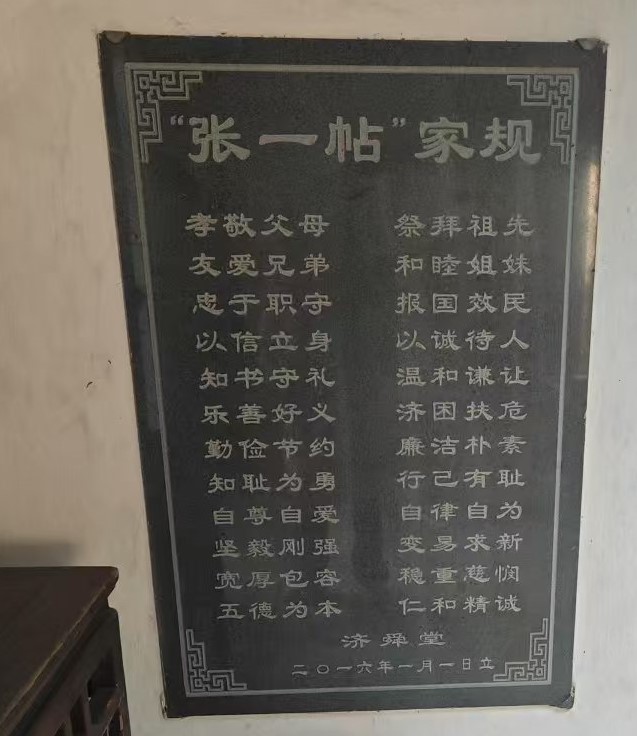 “张一帖”家规
孝敬父母 祭拜祖先
友爱兄弟 和睦姐妹
忠于职守 报国效民
以信立身 以诚待人
知书守礼 温和谦让
乐善好义 济困扶危
勤俭节约 廉洁朴素
知耻为勇 行己有耻
自尊自爱 自律自为
坚毅刚强 变易求新
宽厚包容 稳重慈悯
五德为本 仁和精诚
济舜堂
二〇一六年一月一日立